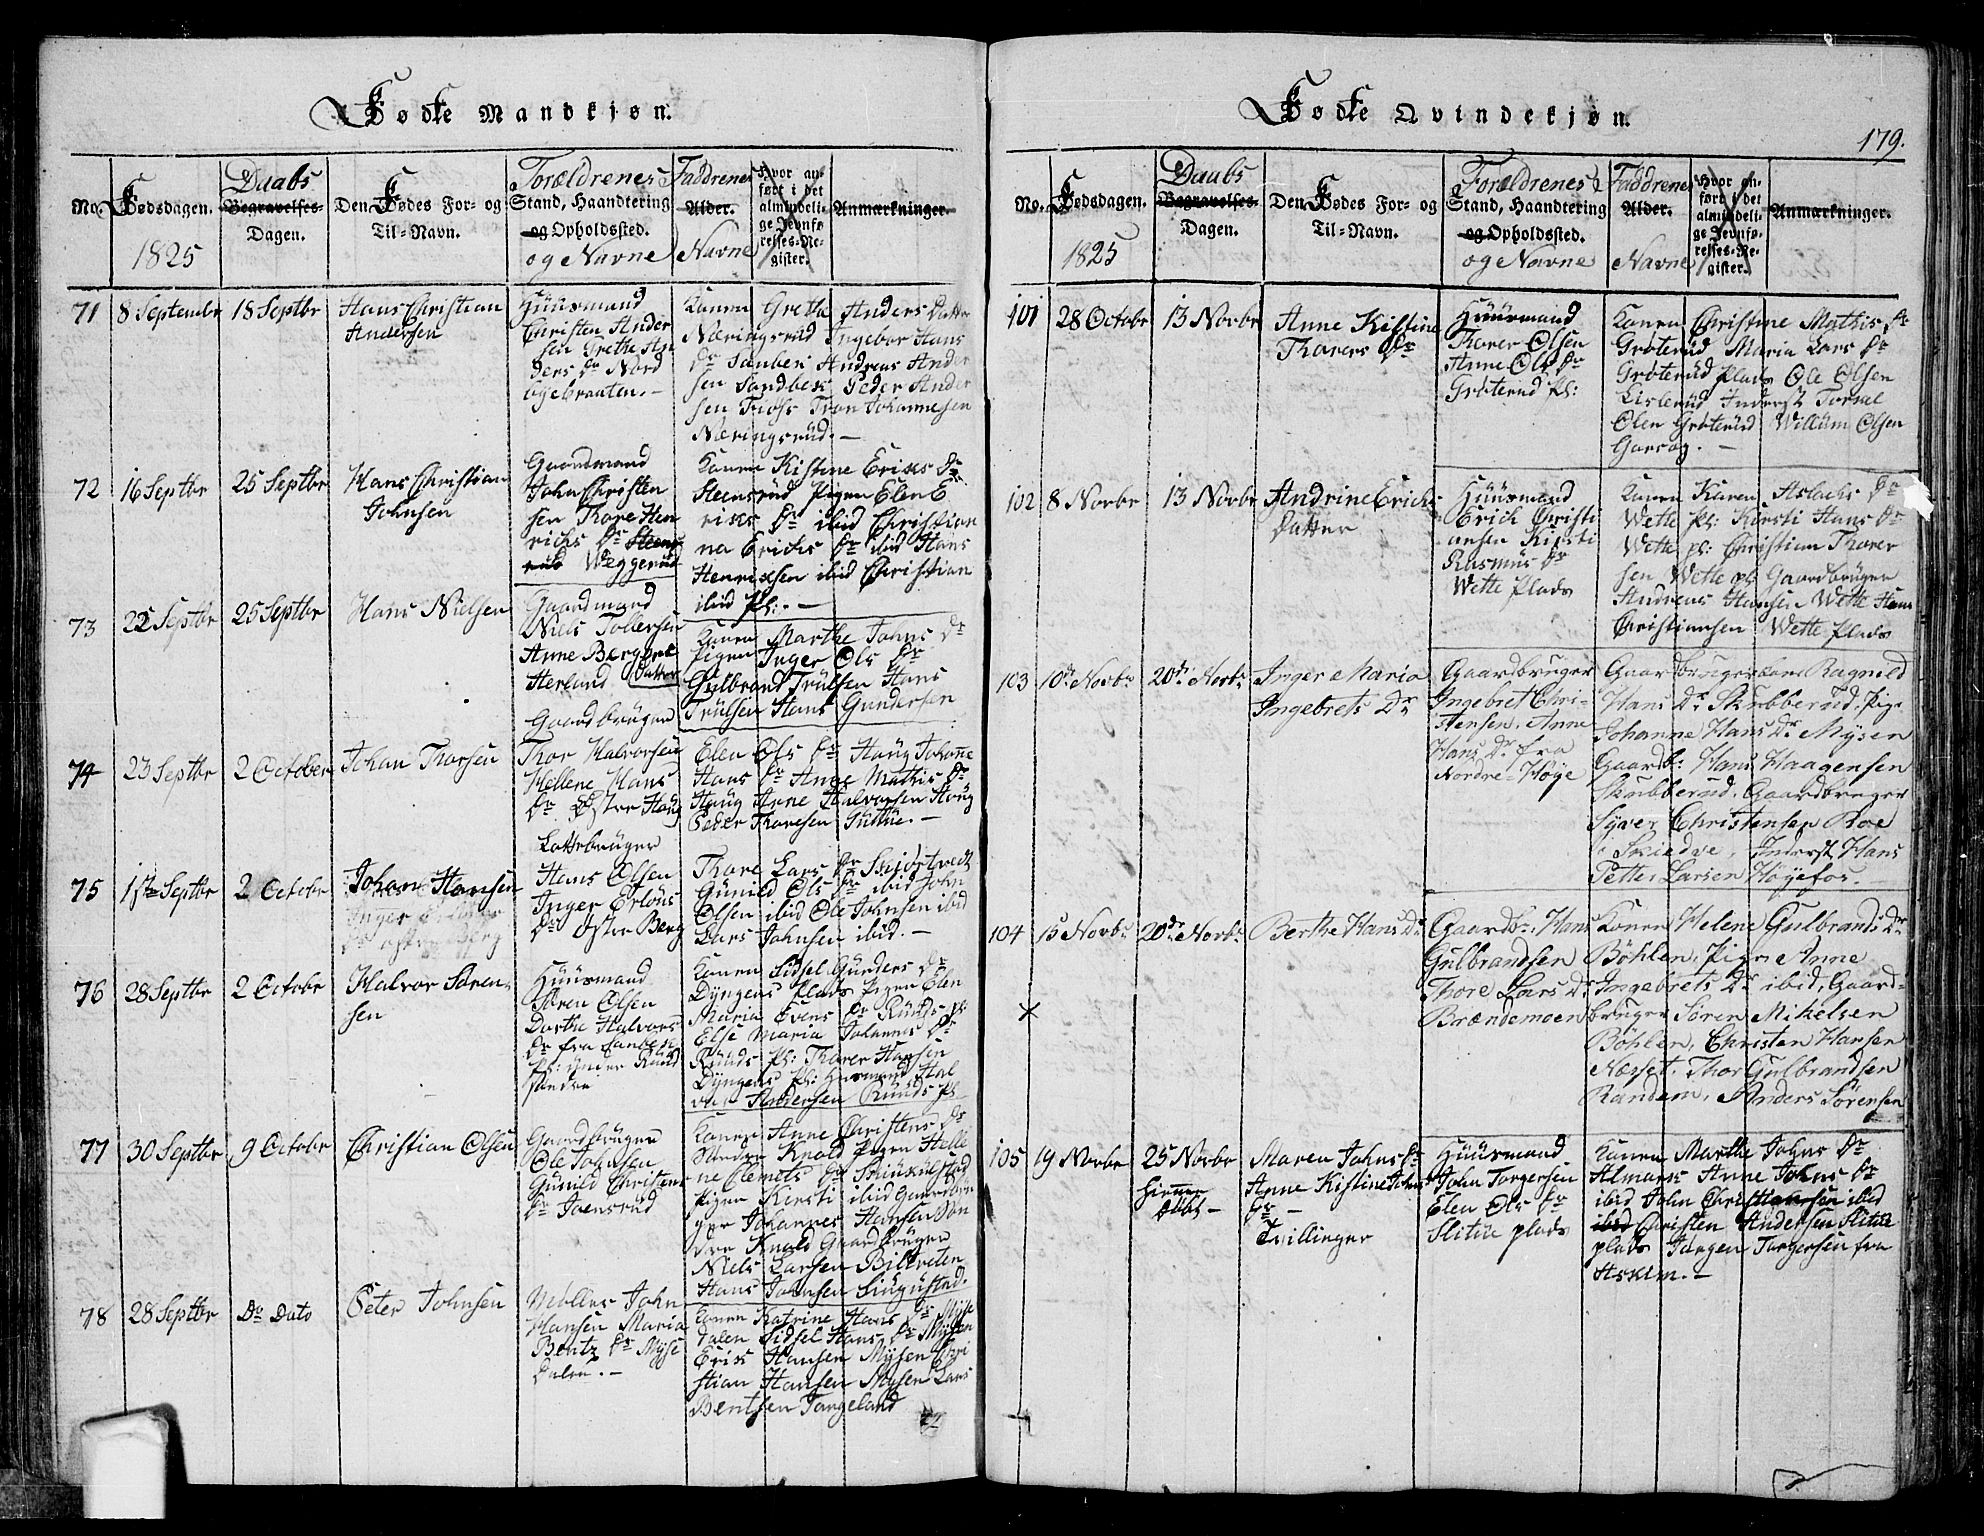 Fødte Mandkjøn.
No.
Fødsdagen.
1825
Daabs
Begravelses-
Dagen.
Den Fødes For- og
Til-Navn.
Forældrenes
Stand, Haandtering
og Opholdssted.
og Navne
Faddrenes
Alder.
Navne
Hvor an-
ført i det
almindeli-
ge Jevnfø-
relses-Re-
gister.
Anmærkninger.
71
8 Septembr
18 Septbr
Hans Christian
Andersen
Huusmand
Christen Ander
sen Grethe An
ders Dr Nord
bgebraaten.-
Konen Grethe Anders Datter
Næringsrud Ingebor Hans
Dr Sandbek Andreas Ander
sen Sandbek Peder Ander
sen Trøss Tron Johannesen
Næringsrud.-
72
16 Septbr
25 Septbr
Hans Christian
Johnsen
Gaardmand
John Christen
sen Thore Hen
richs Dr Steens
rud Weggerud
Konen Kistine Eriks Dr
Steensrud Pigen Elen E
riks Dr ibid Christian
na Erichs Dr ibid Hans
Henriksen ibid Christian
ibid Pl:.-
73
22 Septbr
25 Septbr
Hans Nielsen
Gaardmand
Niels Tollersen
Anne Bergret
Herland Datter
Konen Marthe Johns Dr
Pigen Inger Ols Dr
Gulbrand Trulsen Hans
Trulsen Hans Gundersen
74
23 Septbr
2 October
Johan Thorsen
Gaardbruger
Thor Halvorsen
Hellene Hans
Dr Østre Haug
Elen Ols Dr Haug Johanne
Hans Dr Anne Mathis Dr
Haug Arne Halvorsen Haug
Peder Thoresen Guttue.-
75
1ste Septbr
2 Octobr
Johan Hansen
Lottebruger
Hans Olsen
Inger Erlands
Dr Østre Berg
Thore Lars Dr Skiøstvedt
Gunild Ols Dr ibid John
Olsen ibid Ole Johnsen ibid
Lars Johnsen ibid.-
76
28 Septbr
2 Octobr
Halvor Søren-
sen
Huusmand
Søren Olsen
Dorthe Halvors
Dr fra Sanbek
Pl: under Ruud
søndre
Konen Sidsel Gunders Dr
Dyngens plads Pigen Elen
Maria Evens Dr Ruuds pl
Else Maria Johannes Dr
Ruuds Pl: Thorer Hansen
Dyngens Pl: Husmand Hal
vor Andersen Ruuds pl
77
30 Septbr
9 Octobr
Christian Olsen
Gaardbruger
Ole Johnsen
Gunild Christens
Dr Joensrud
Konen Anne Christens Dr
Søndre Knold Pigen Helle
ne Clemets Dr
Pigen Kirsti ibid Gaardbru
ger Johannes Hansen Søn
dre Knold Gaardbruger
Niels Larsen Bilitreten
Hans Johnsen Singustad.
78
28 Septbr
Do Dato
Peter Johnsen
Møller John
Hansen Maria
Bentz Dr Myse
Dalen.-
Konen Katrine Hans Dr Myse
dalen Sidsel Hans Dr Mysen
Erik Hansen Mysen Chri
stian Hansen Mysen Lars
Bentsen Torgeland
Fødte Qvindekjøn.
179.
No.
Fødsdagen.
1825
Daabs
Begravelses-
Dagen.
Den Fødes For- og
Til-Navn.
Forældrenes
Stand, Haandtering
og Opholdssted.
og Navne
Faddrenes
Alder.
Navne
Hvor an-
ført i det
almindeli-
ge Jevnfø-
relses-Re-
gister.
Anmærkninger.
101
28 Octobr
13 Novbr
Anne Kistine
Thorers Dr
Huusmand
Thorer Olsen
Anne Ols Dr
Grøterud Pl:
Konen Christine Mathis Dr
Grøterud Maria Lars Dr
Grøterud Plads Ole Olsen
Lislerud Inderst Torkel
Olen Grøterud Willum Olsen
Gorsog.-
102
8 Novbr
13 Novbr
Andrine Erichs
Datter
Huusmand
Erich Christi
ansen Kirsti
Rasmus Dr
Wette Plads
Konen Karen Aslachs Dr
Wette Pl: Kirsti Hans Dr
Wette pl: Christian Thorer
sen Wette pl: Gaardbruger
Andreas Hansen Wette Hans
Christiansen Wette Plads
103
10de Novbr
20de Novbr
Inger Maria
Ingebrets Dr
Gaardbruger
Ingebret Chri-
stensen, Anne
Hans Dr fra
Nordre-Høye
Gaardbrugerkone Ragnild
Hans Dr Skubberud, Pige
Johanne Hans Dr Mysen
Gaardb: Hans Haagensen
Skubberud, Gaardbruger
Syver Christensen Roe
i Skiedve, Inderst Hans
Petter Larsen Høyefos.
104
15 Novbr
20de Novbr
Berthe Hans Dr
Gaardbr. Hans
Gulbrandsen
Thore Lars Dr
Brændemoen
Konen Helene Gulbrands Dr
Bøhlen, Pige Anne
Ingebrets Dr ibid, Gaard-
bruger Søren Mikelsen
Bøhlen, Christen Hansen
Næset. Thor Gulbrandsen
Randem, Anders Sørensen
105
19 Novbr
25 Novbr
Hiemme
døbt-
Maren Johns Dr
Anne Kistine Johns
Dr -
Tvillinger
Huusmand
John Torgersen
Elen Ols Dr
Slitue plads
Konen Marthe Johns Dr
Almark Anne Johns Dr
ibid John Chri Hansen ibid
ibid Christen Andersen Slitue
plads Jørgen Torgersen fra
Askim.-